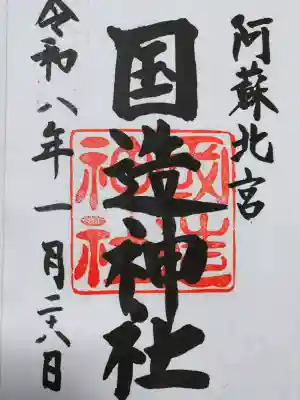 阿蘇北宮
国造神社
國造
神社
令和八年一月二十八日